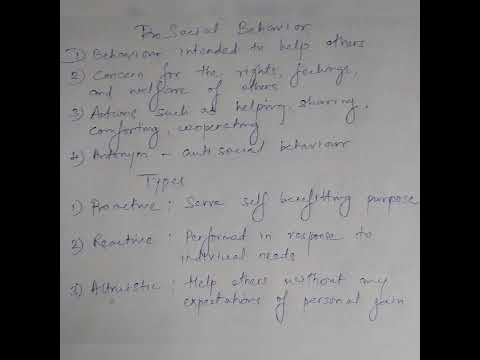 Pro Social Behavior
1) Behaviour intended to help others
2) Concern for the rights, feelings,
and welfare of others
3) Actions such as helping, sharing,
comforting, cooperating
4) Antonym - anti social behaviour
Types
1) Proactive : Serve self benefitting purpose
2) Reactive : Performed in response to
individual needs
3) Altruistic : Help others without any
expectations of personal gain